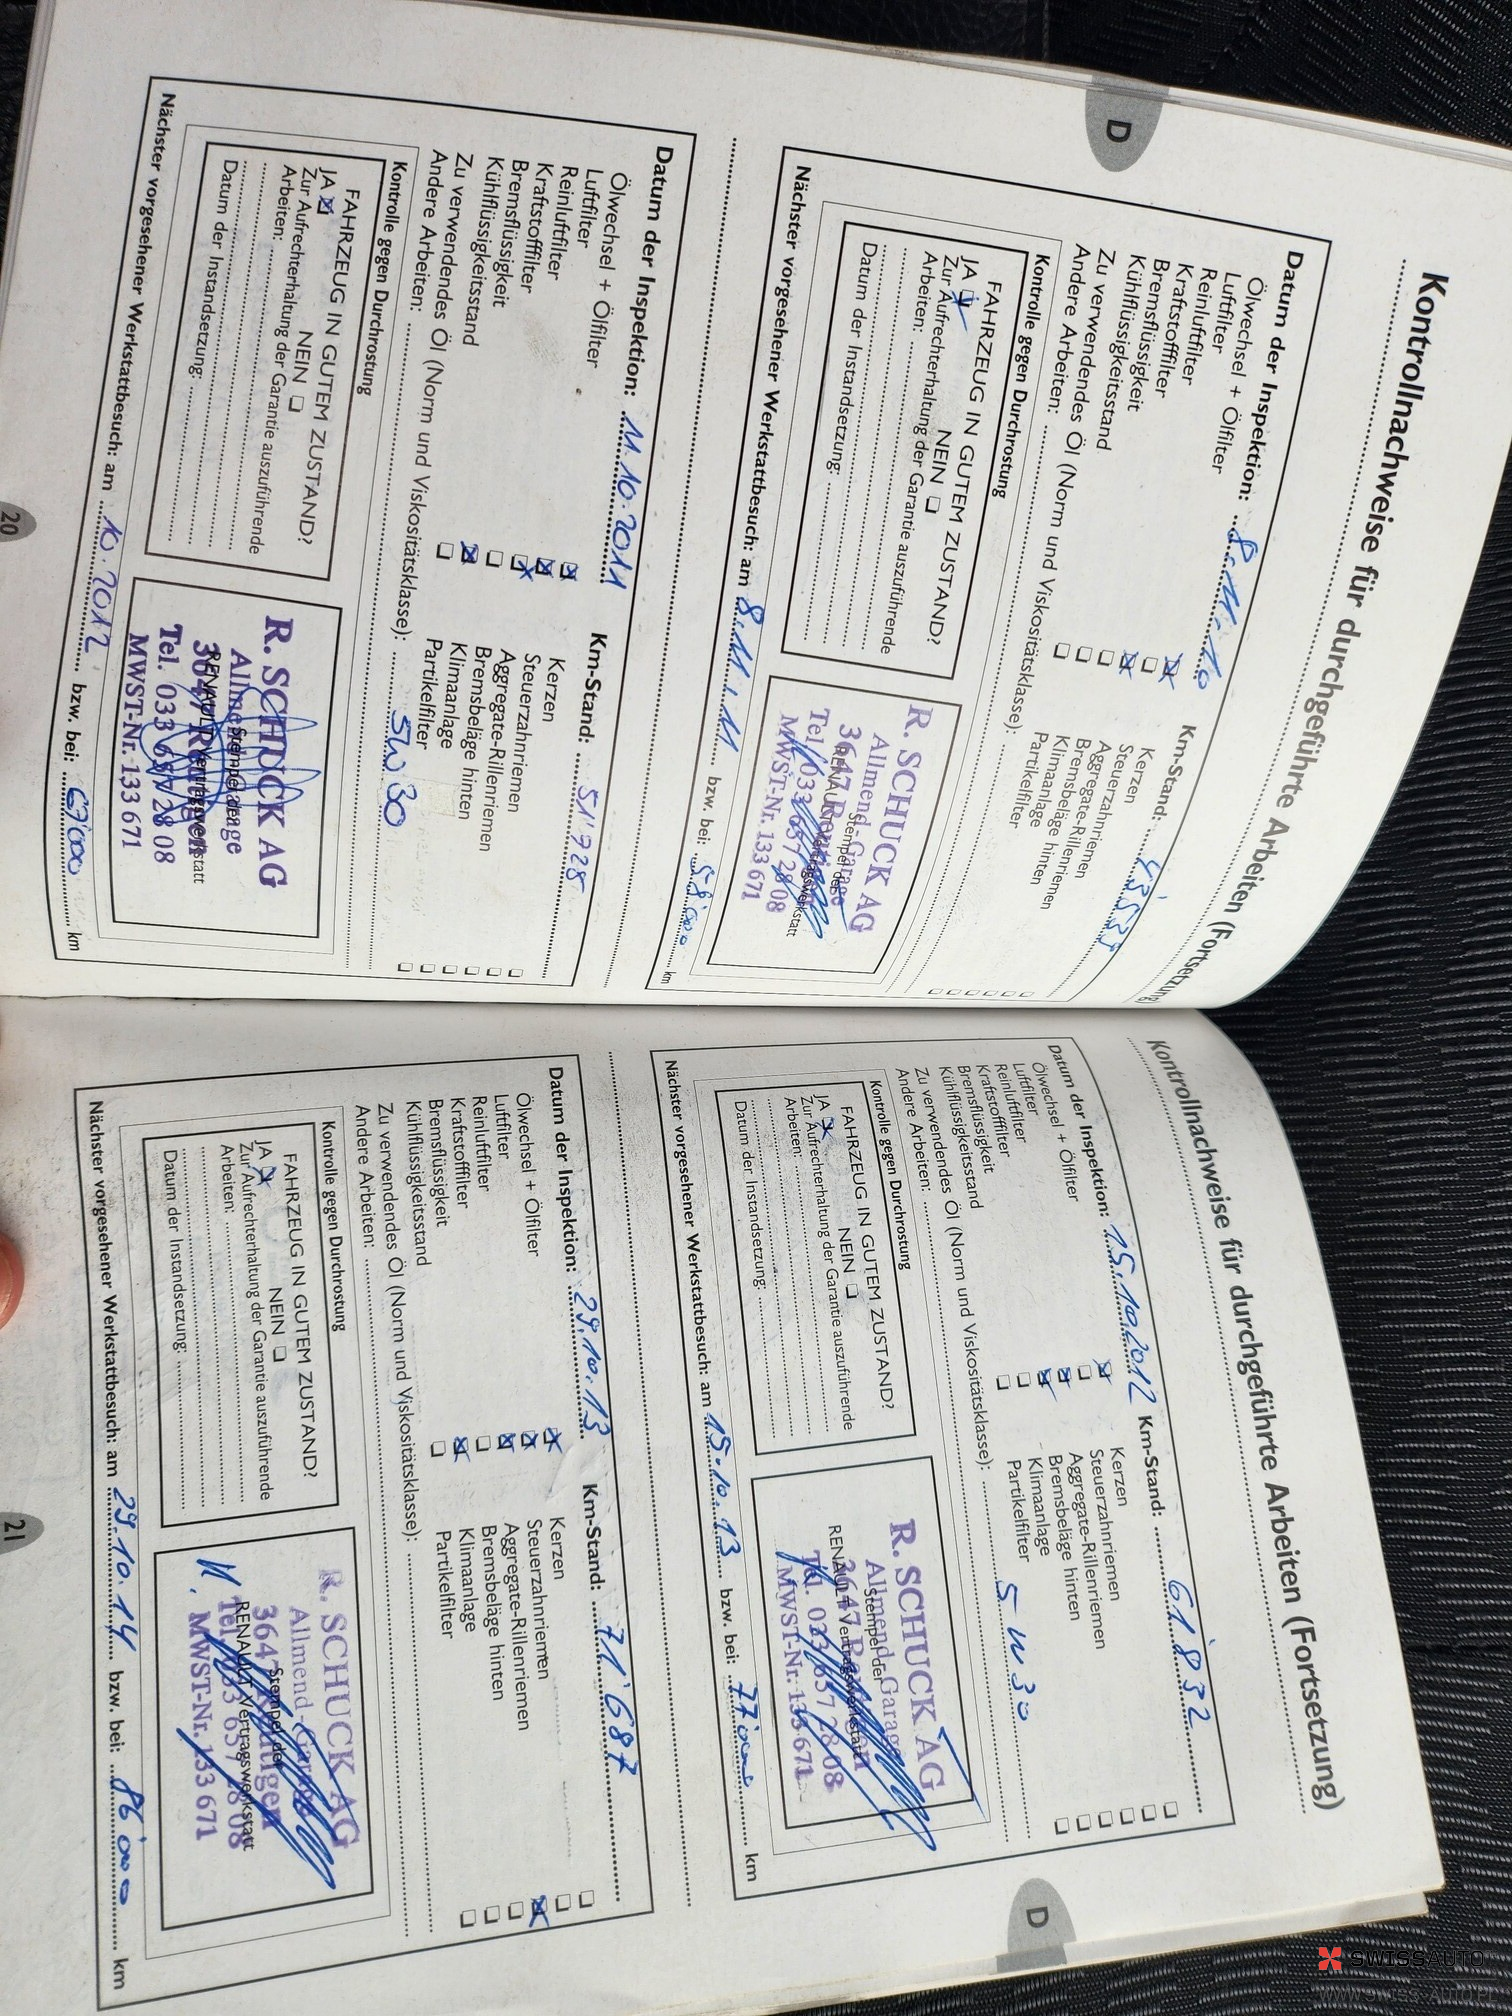 D
Kontrollnachweise für durchgeführte Arbeiten (Fortsetzung)
Datum der Inspektion: 8.11.10 Km-Stand:
Ölwechsel + Ölfilter Kerzen
Luftfilter Steuerzahnriemen
Reinluftfilter Aggregate-Rillenriemen
Kraftstofffilter Bremsbeläge hinten
Bremsflüssigkeit Klimaanlage
Kühlflüssigkeitsstand Partikelfilter
Zu verwendendes Öl (Norm und Viskositätsklasse):
Andere Arbeiten:
Kontrolle gegen Durchrostung
FAHRZEUG IN GUTEM ZUSTAND?
JA NEIN
Zur Aufrechterhaltung der Garantie auszuführende
Arbeiten:
Datum der Instandsetzung:
R. SCHUCK AG
Allmend-Garage
Stempel der
RENAULT Vertragswerkstatt
3647 Reutigen
Tel. 033 657 28 08
MWST-Nr. 133 671
Nächster vorgesehener Werkstattbesuch: am 8.11.11 bzw. bei: 58'000 km
Datum der Inspektion: 11.10.2011 Km-Stand: 51'928
Ölwechsel + Ölfilter Kerzen
Luftfilter Steuerzahnriemen
Reinluftfilter Aggregate-Rillenriemen
Kraftstofffilter Bremsbeläge hinten
Bremsflüssigkeit Klimaanlage
Kühlflüssigkeitsstand Partikelfilter
Zu verwendendes Öl (Norm und Viskositätsklasse): 5W30
Andere Arbeiten:
Kontrolle gegen Durchrostung
FAHRZEUG IN GUTEM ZUSTAND?
JA NEIN
Zur Aufrechterhaltung der Garantie auszuführende
Arbeiten:
Datum der Instandsetzung:
R. SCHUCK AG
Allmend-Garage
Stempel der
RENAULT Vertragswerkstatt
3647 Reutigen
Tel. 033 657 28 08
MWST-Nr. 133 671
Nächster vorgesehener Werkstattbesuch: am 10.2012 bzw. bei: 67'000 km
20
Kontrollnachweise für durchgeführte Arbeiten (Fortsetzung)
D
Datum der Inspektion: 15.10.2012 Km-Stand: 61'832
Ölwechsel + Ölfilter Kerzen
Luftfilter Steuerzahnriemen
Reinluftfilter Aggregate-Rillenriemen
Kraftstofffilter Bremsbeläge hinten
Bremsflüssigkeit Klimaanlage
Kühlflüssigkeitsstand Partikelfilter
Zu verwendendes Öl (Norm und Viskositätsklasse): 5W30
Andere Arbeiten:
Kontrolle gegen Durchrostung
FAHRZEUG IN GUTEM ZUSTAND?
JA NEIN
Zur Aufrechterhaltung der Garantie auszuführende
Arbeiten:
Datum der Instandsetzung:
R. SCHUCK AG
Allmend-Garage
Stempel der
RENAULT Vertragswerkstatt
3647 Reutigen
Tel. 033 657 28 08
MWST-Nr. 133 671
Nächster vorgesehener Werkstattbesuch: am 15.10.13 bzw. bei: 77'000 km
Datum der Inspektion: 29.10.13 Km-Stand: 71'687
Ölwechsel + Ölfilter Kerzen
Luftfilter Steuerzahnriemen
Reinluftfilter Aggregate-Rillenriemen
Kraftstofffilter Bremsbeläge hinten
Bremsflüssigkeit Klimaanlage
Kühlflüssigkeitsstand Partikelfilter
Zu verwendendes Öl (Norm und Viskositätsklasse):
Andere Arbeiten:
Kontrolle gegen Durchrostung
FAHRZEUG IN GUTEM ZUSTAND?
JA NEIN
Zur Aufrechterhaltung der Garantie auszuführende
Arbeiten:
Datum der Instandsetzung:
R. SCHUCK AG
Allmend-Garage
Stempel der
RENAULT Vertragswerkstatt
3647 Reutigen
Tel. 033 657 28 08
MWST-Nr. 133 671
Nächster vorgesehener Werkstattbesuch: am 29.10.14 bzw. bei: 86'000 km
21
SWISSAUTO